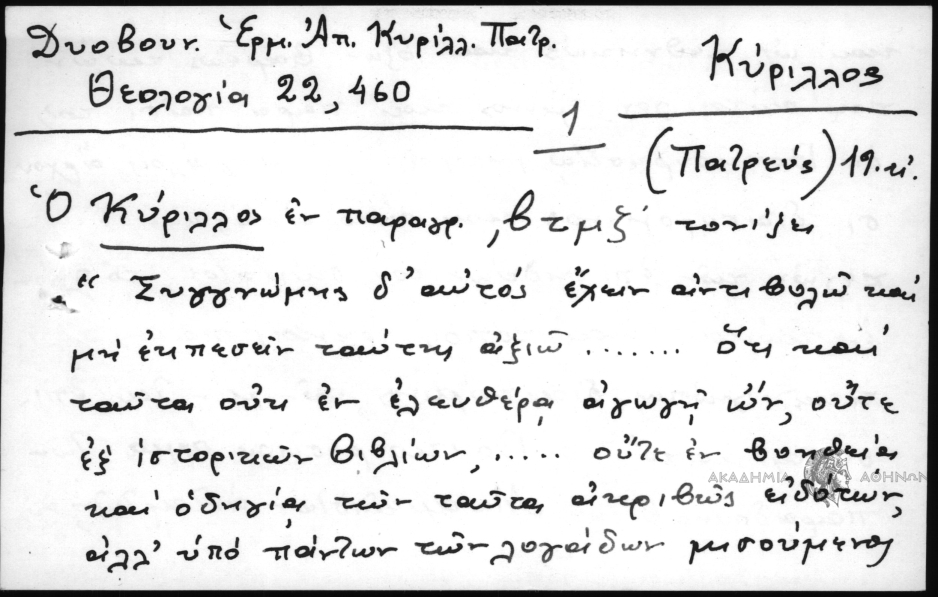 Δυοβουν. Ἑρμ. Ἀπ. Κυρίλλ. Πατρ.
Θεολογία 22, 460
Κύριλλος
1
(Πατρεύς) 19. αἰ.
Ὁ Κύριλλος ἐν παραγρ. ͵βτμξ τονίζει
“Συγγνώμης δ' αὐτὸς ἔχειν ἀντιβολῶ καὶ
μὴ ἐκπεσεῖν ταύτης ἀξιῶ ....... Ὅτι καὶ
ταῦτα οὔτι ἐν ἐλευθέρᾳ ἀγωγῇ ὤν, οὔτε
ἐξ ἱστορικῶν βιβλίων, ..... οὔτε ἐν βοηθείᾳ
ΑΚΑΔΗΜΙΑ ΑΘΗΝΩΝ
καὶ ὁδηγίᾳ τῶν ταῦτα ἀκριβῶς εἰδότων,
ἀλλ' ὑπὸ πάντων τῶν λογάδων μισούμενος